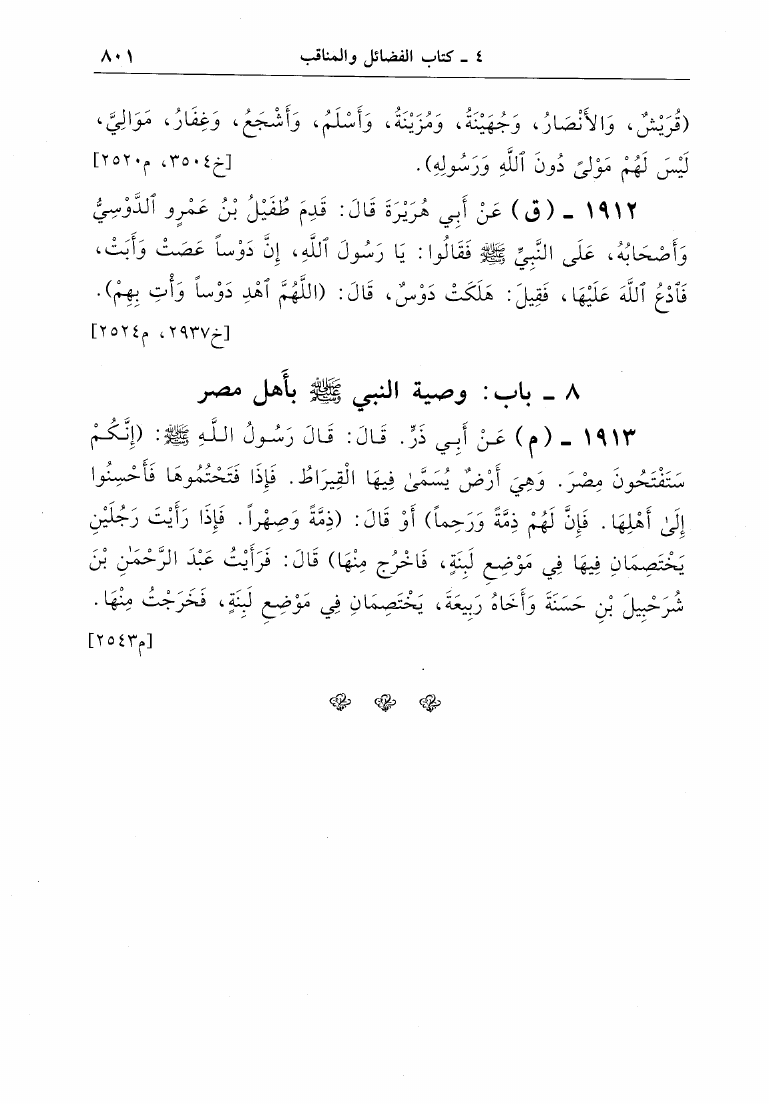 ٤ ـ كتاب الفضائل والمناقب ٨٠١
(قُرَيْشٌ، وَالأَنْصَارُ، وَجُهَيْنَةُ، وَمُزَيْنَةُ، وَأَسْلَمُ، وَأَشْجَعُ، وَغِفَارُ، مَوَالِيَّ،
لَيْسَ لَهُمْ مَوْلىً دُونَ ٱللَّهِ وَرَسُولِهِ). [خ٣٥٠٤، م٢٥٢٠]
١٩١٢ ـ (ق) عَنْ أَبِي هُرَيْرَةَ قَالَ: قَدِمَ طُفَيْلُ بْنُ عَمْرٍو ٱلدَّوْسِيُّ
وَأَصْحَابُهُ، عَلَى النَّبِيِّ ﷺ فَقَالُوا: يَا رَسُولَ ٱللَّهِ، إِنَّ دَوْساً عَصَتْ وَأَبَتْ،
فَٱدْعُ ٱللَّهَ عَلَيْهَا، فَقِيلَ: هَلَكَتْ دَوْسٌ، قَالَ: (اللَّهُمَّ ٱهْدِ دَوْساً وَأْتِ بِهِمْ).
[خ٢٩٣٧، م٢٥٢٤]
٨ ـ باب: وصية النبي ﷺ بأهل مصر
١٩١٣ ـ (م) عَنْ أَبِي ذَرٍّ. قَالَ: قَالَ رَسُولُ اللَّهِ ﷺ: (إِنَّكُمْ
سَتَفْتَحُونَ مِصْرَ. وَهِيَ أَرْضٌ يُسَمَّىٰ فِيهَا الْقِيرَاطُ. فَإِذَا فَتَحْتُمُوهَا فَأَحْسِنُوا
إِلَىٰ أَهْلِهَا. فَإِنَّ لَهُمْ ذِمَّةً وَرَحِماً) أَوْ قَالَ: (ذِمَّةً وَصِهْراً. فَإِذَا رَأَيْتَ رَجُلَيْنِ
يَخْتَصِمَانِ فِيهَا فِي مَوْضِعِ لَبِنَةٍ، فَاخْرُج مِنْهَا) قَالَ: فَرَأَيْتُ عَبْدَ الرَّحْمٰنِ بْنَ
شُرَحْبِيلَ بْنِ حَسَنَةَ وَأَخَاهُ رَبِيعَةَ، يَخْتَصِمَانِ فِي مَوْضِعِ لَبِنَةٍ، فَخَرَجْتُ مِنْهَا.
[م٢٥٤٣]